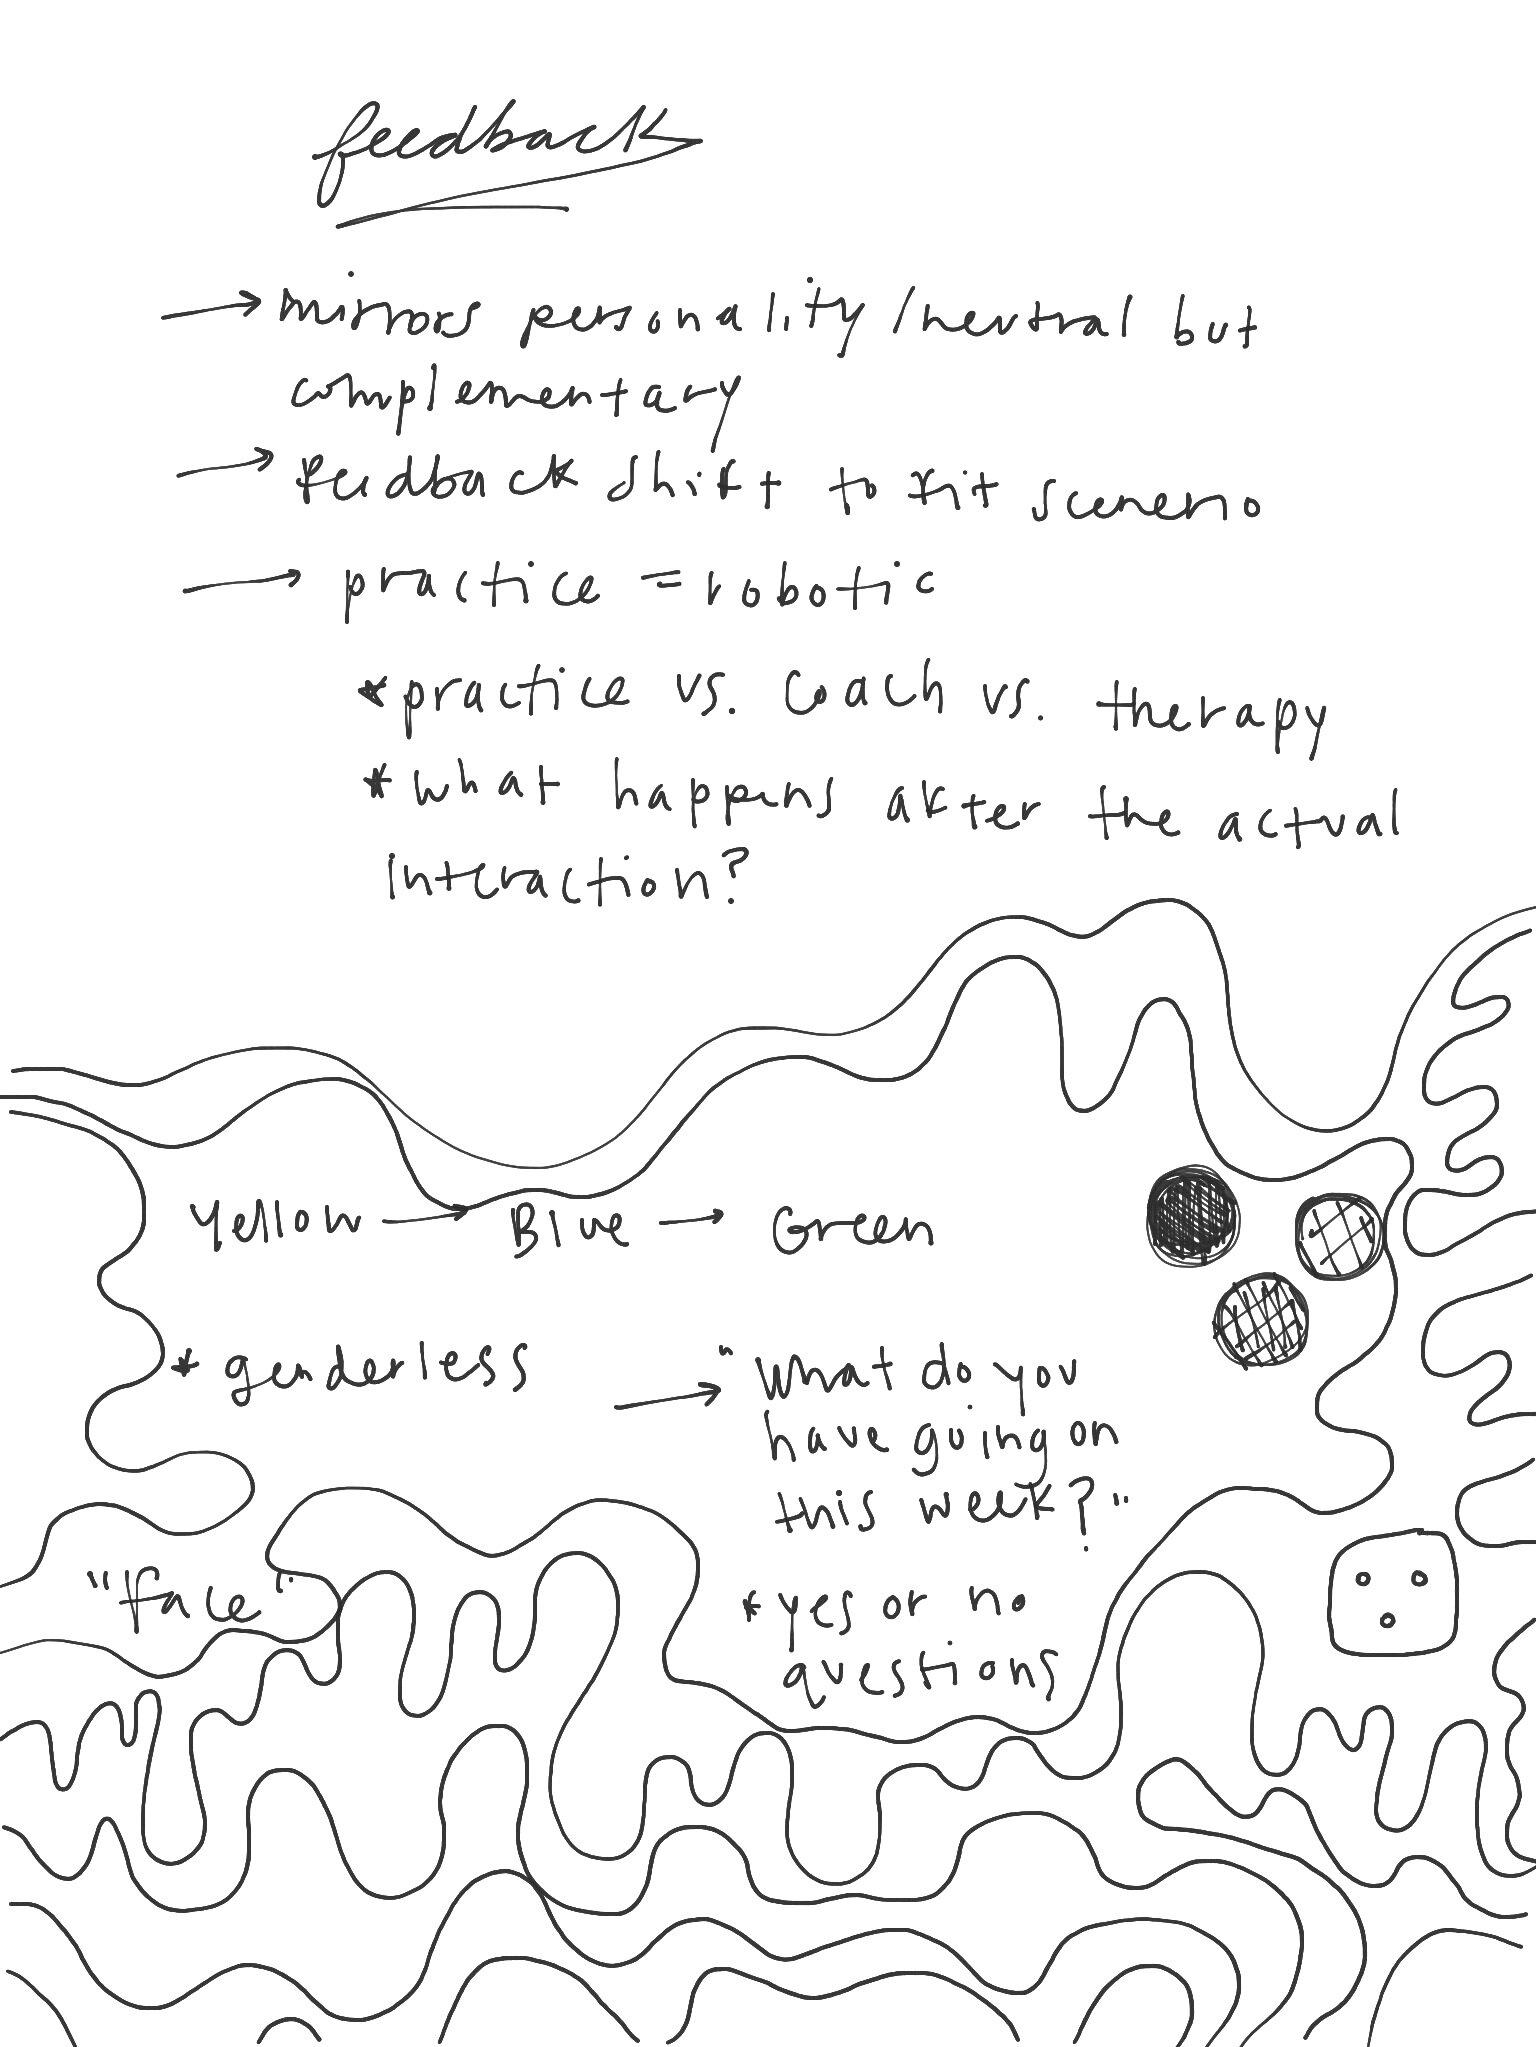 feedback
→ mirrors personality / neutral but
complementary
→ feedback shift to fit scenerio
→ practice = robotic
* practice vs. coach vs. therapy
* what happens after the actual
interaction?
Yellow → Blue → Green
* genderless
→ "What do you
have going on
this week?"
"face"
* yes or no
questions